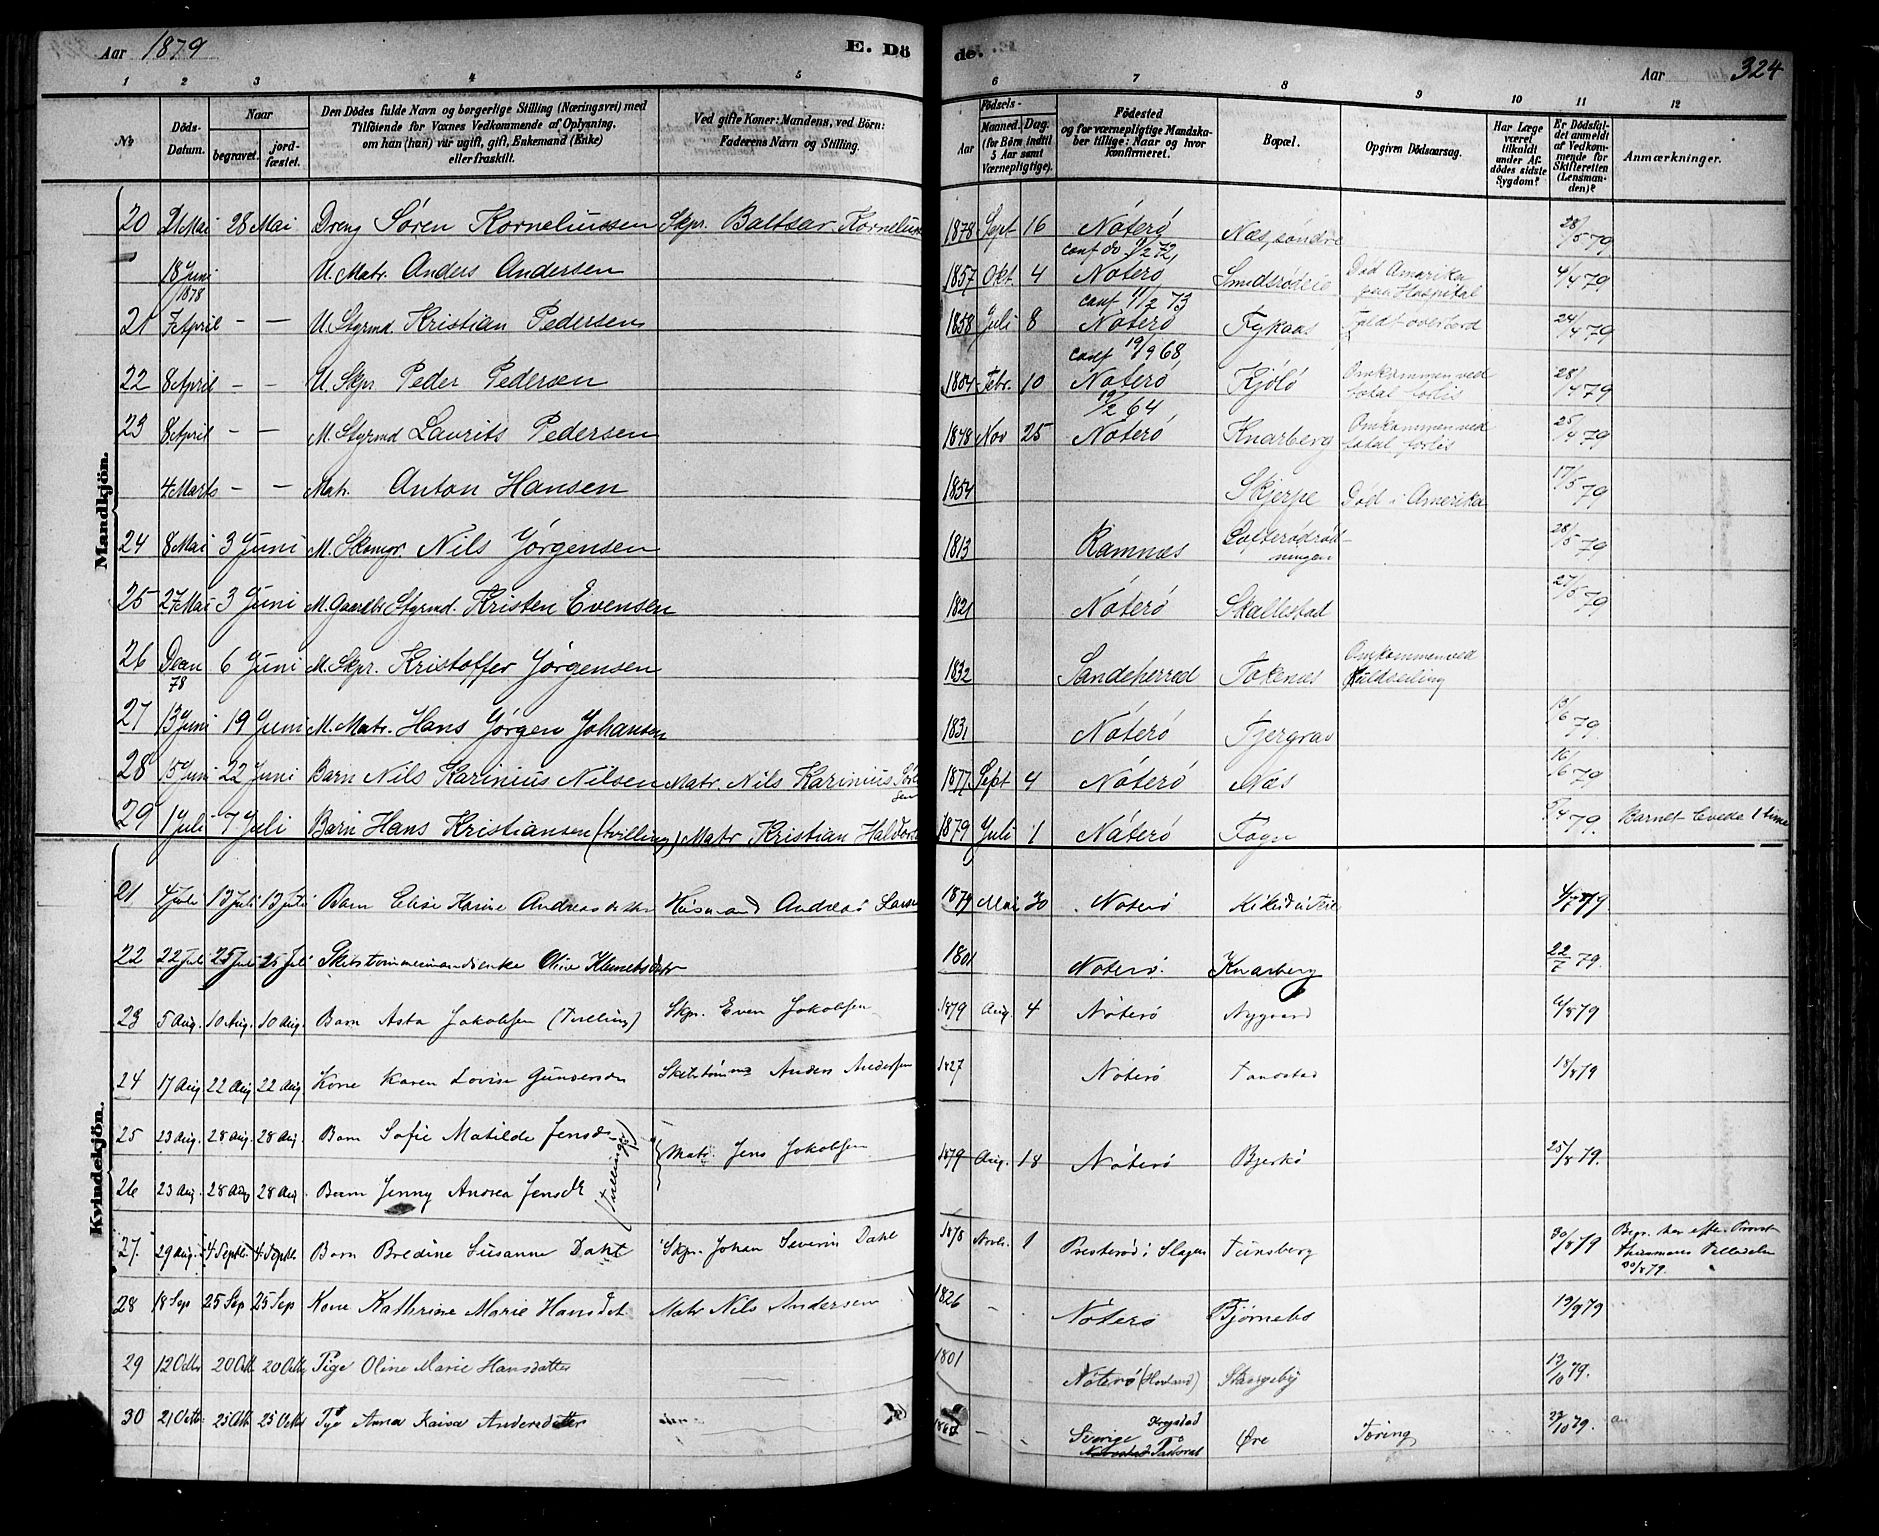 Aar 1879 E. Dö
de. Aar 324
1 2 3 4 5 6 7 8 9 10 11 12
No
Döds-Datum.
Naar
begravet.
jord-fæstet.
Den Dödes fulde Navn og borgerlige Stilling (Næringsvei) med
Tilföiende for Voxnes Vedkommende af Oplysning,
om han (hun) var ugift, gift, Enkemand (Enke)
eller fraskilt.
Ved gifte Koner: Mandens, ved Börn:
Faderens Navn og Stilling.
Födsels-
Aar
Maaned. Dag.
(for Börn indtil
5 Aar samt
Værnepligtige).
Födested
og for værnepligtige Mandska-
ber tillige: Naar og hvor
konfirmeret.
Bopæl.
Opgiven Dödsaarsag.
Har Læge
været
tilkaldt
under Af-
dödes sidste
Sygdom?
Er Dödsfal-
det anmeldt
af Vedkom-
mende for
Skifteretten
(Lensman-
den)?
Anmærkninger.
Mandkjön.
20 21 Mai 28 Mai Dreng Søren Korneliussen Skpr. Baltsar 1878 Sept 16 Nøterø Næs, søndre 28/5 79
18 Juni 1878 U. Matr. Anders Andersen 1857 Okt. 4 conf do 72, Nøterø Død Amerika paa Hospital 4/4 79
21 7 April – – U. Styrmd Kristian Pedersen 1858 Juli 8 conf 73 Nøterø Fykaas Faldt overbord 24/4 79
22 8 April – – U. Skpr Peder Pedersen Febr. 10 conf 19/9 68, Nøterø Kjølø Omkommen ved total forlis 28/4 79
23 8 April – – M. Styrmd Laurits Pedersen 1848 Nov 25 64, Nøterø Knarberg Omkommen ved total forlis 25/4 79
4 Marts – – Matr. Anton Hansen 1854 Skjerpe Død i Amerika 17/5 79
24 8 Mai 3 Juni M. Nils Jørgensen 1813 Ramnæs 28/5 79
25 27 Mai 3 Juni M. Gaardbr Styrmd. Kristen Evensen 1821 Nøterø Skallestad 27/5 79
26 78 6 Juni M. Skpr. Kristoffer Jørgensen 1832 Sandeherred Fokenæs Omkommen ved Kuldseiling
27 13 Juni 19 Juni M. Matr. Hans Jørgen Johansen 1831 Nøterø 13/6 79.
28 15 Juni 22 Juni Barn Nils Karinius Nilsen Matr. Nils Karinius 1877 Sept 4 Nøterø Næs 16/6 79
29 1 Juli 7 Juli Barn Hans Kristiansen (tvilling) Matr Kristian 1879 Juli 1 Nøterø 79. Barnet levede 1 time
Kvindekjön.
21 4 Juli 13 Juli 13 Juli Barn Elise Karine Husmand Andreas 1879 Mai 30 Nøterø 79
22 22 Juli 25 Juli 25 Juli Oline 1801 Nøterø. Knarberg 22/7 79.
23 5 Aug. 10 Aug. 10 Aug. Barn Asta Jakobsen (Tvilling) Skpr. Even Jakobsen 1879 Aug. 4 Nøterø Nygaard 6/8 79
24 17 Aug 22 Aug 22 Aug Kone Karen Lovise Anders Andersen 1827 Nøterø 18/8 79
25 23 Aug. 28 Aug. 28 Aug. Barn Sofie Matilde (Tvillinger) Matr. Jens Jakobsen 1879 Aug. 18 Nøterø Bjerkø 25/8 79.
26 23 Aug. 28 Aug 28 Aug. Barn Jenny Andrea
27. 29 Aug. 4 Septbr 4 Septbr Barn Bredine Susanne Dahl Skpr. Johan Severin Dahl 1878 1 Presterød i Slagen Tønsberg 30/8 79 Begr. her efter Provst 30/8 79.
28 18 Sep 25 Sep 25 Sep Kone Kathrine Marie Matr Nils Andersen 1826 – Nøterø 19/9 79
29 12 Octb 20 Octb 20 Octb Pige Oline Marie Hansdatter 1801 Nøterø (Hovland) 13/10 79.
30 21 Octb. 25 Octb 25 Octb Anna Kaisa Andersdatter – – Sverige Øre Tæring 22/10 79.